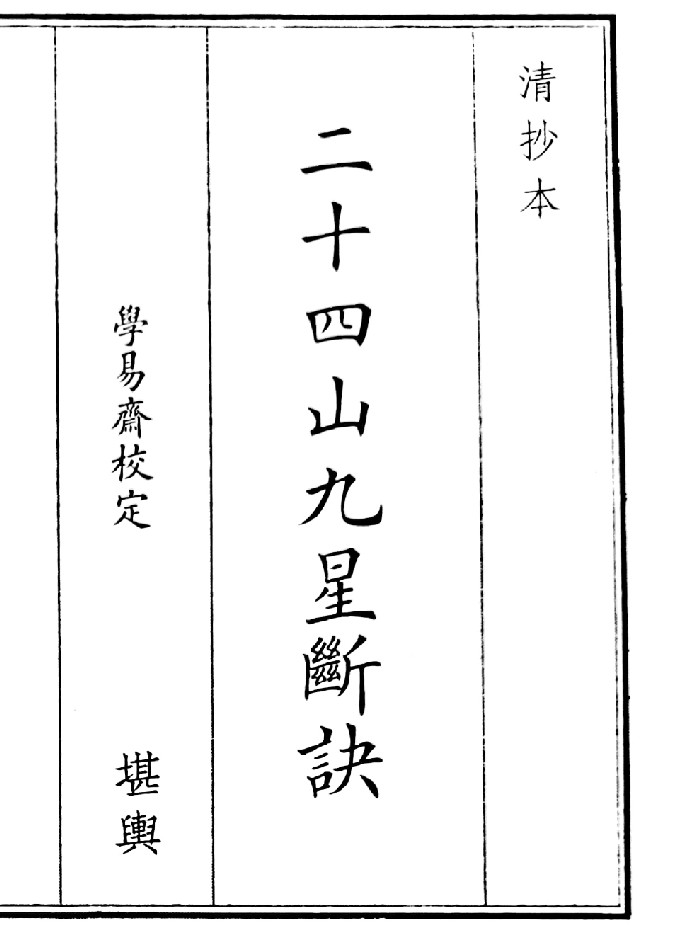 清抄本
二十四山九星斷訣
學易齋校定
堪輿